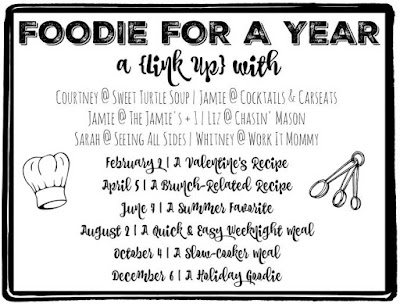 FOODIE FOR A YEAR
a {Link Up} with
COURTNEY @ SWEET TURTLE SOUP | JAMIE @ COCKTAILS & CARSEATS
JAMIE @ THE JAMIE'S + 1 | LIZ @ CHASIN' MASON
SARAH @ SEEING ALL SIDES | WHITNEY @ WORK IT MOMMY
February 2 | A Valentine's Recipe
April 5 | A Brunch-Related Recipe
June 7 | A Summer Favorite
August 2 | A Quick & Easy Weeknight Meal
October 4 | A Slow-Cooker Meal
December 6 | A Holiday Goodie